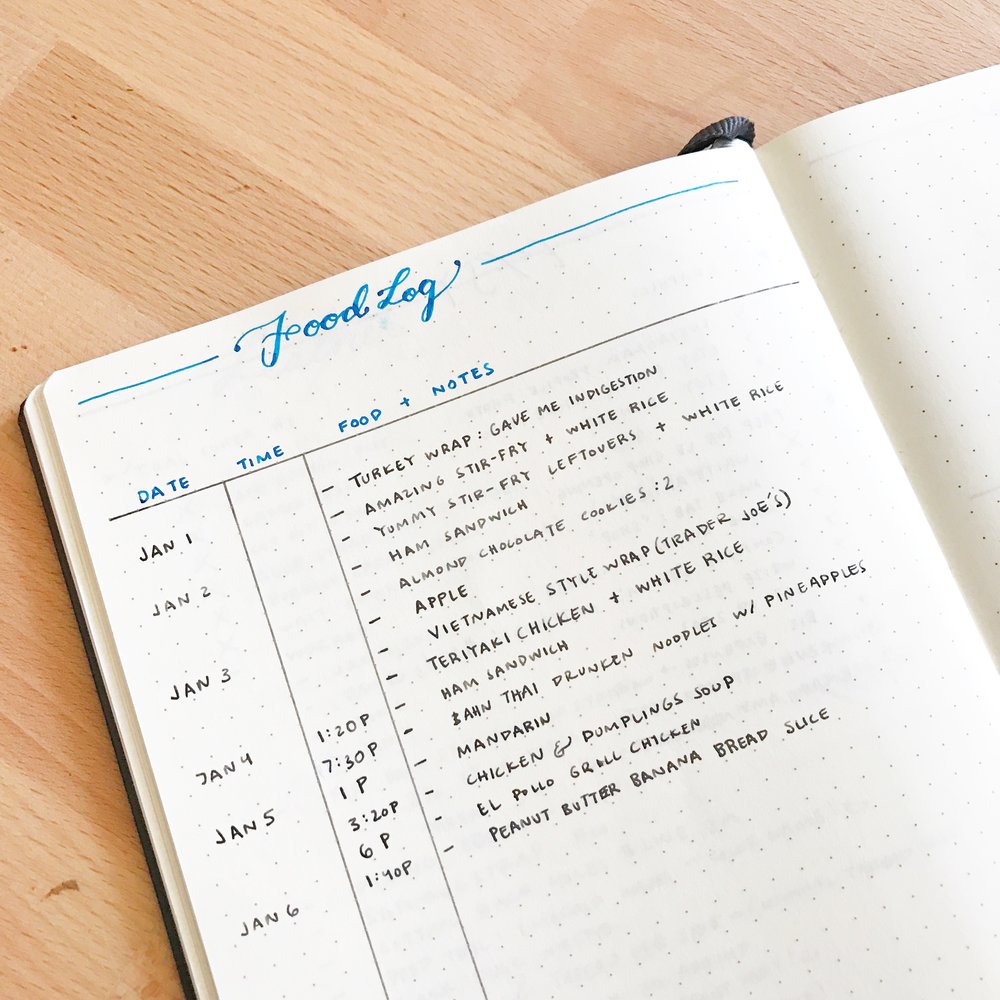 Food Log
DATE TIME FOOD + NOTES
JAN 1 - TURKEY WRAP: GAVE ME INDIGESTION
- AMAZING STIR-FRY + WHITE RICE
JAN 2 - YUMMY STIR-FRY LEFTOVERS + WHITE RICE
- HAM SANDWICH
- ALMOND CHOCOLATE COOKIES: 2
JAN 3 - APPLE
- VIETNAMESE STYLE WRAP (TRADER JOE'S)
- TERIYAKI CHICKEN + WHITE RICE
JAN 4 1:20P - HAM SANDWICH
7:30P - BAHN THAI DRUNKEN NOODLES W/ PINEAPPLES
JAN 5 1 P - MANDARIN
3:20P - CHICKEN & DUMPLINGS SOUP
6 P - EL POLLO GRILL CHICKEN
JAN 6 1:40P - PEANUT BUTTER BANANA BREAD SLICE